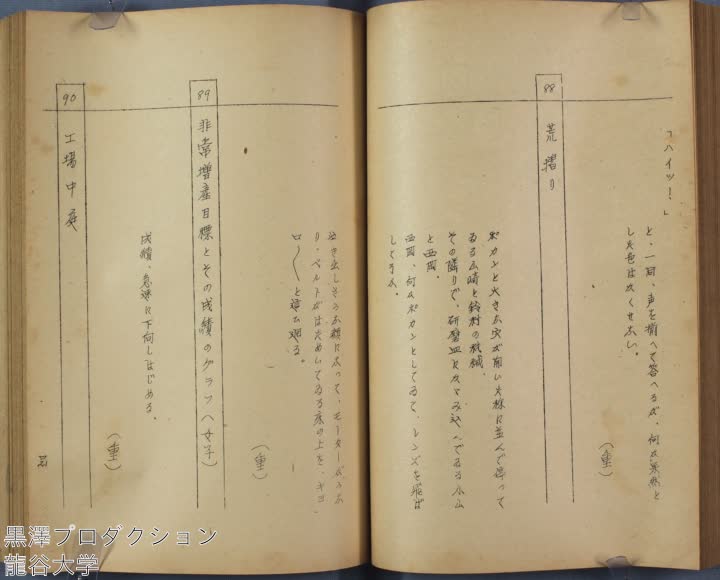 「ハイッ！」
と、一同、声を揃へて答へるが、何か呆然と
した色はかくせない。
（重）
88
荒摺り
ポカンと大きな穴が開いた様に並んで停って
ゐる山崎と鈴村の機械
その隣りで、研磨皿にかゞみ込んでゐる小山
と西岡。
西岡、何かポカンとしてゐて、レンズを飛ば
してゐる。
泣き出しさうな顔になって、モーターがうな
り、ベルトがはためいてゐる床の上を、キョ
ロ〱と尋ね廻る。
（重）
89
非常増産目標とその成績のグラフ（女子）
成績、急速に下向しはじめる。
（重）
90
工場中庭
黒澤プロダクション
龍谷大学